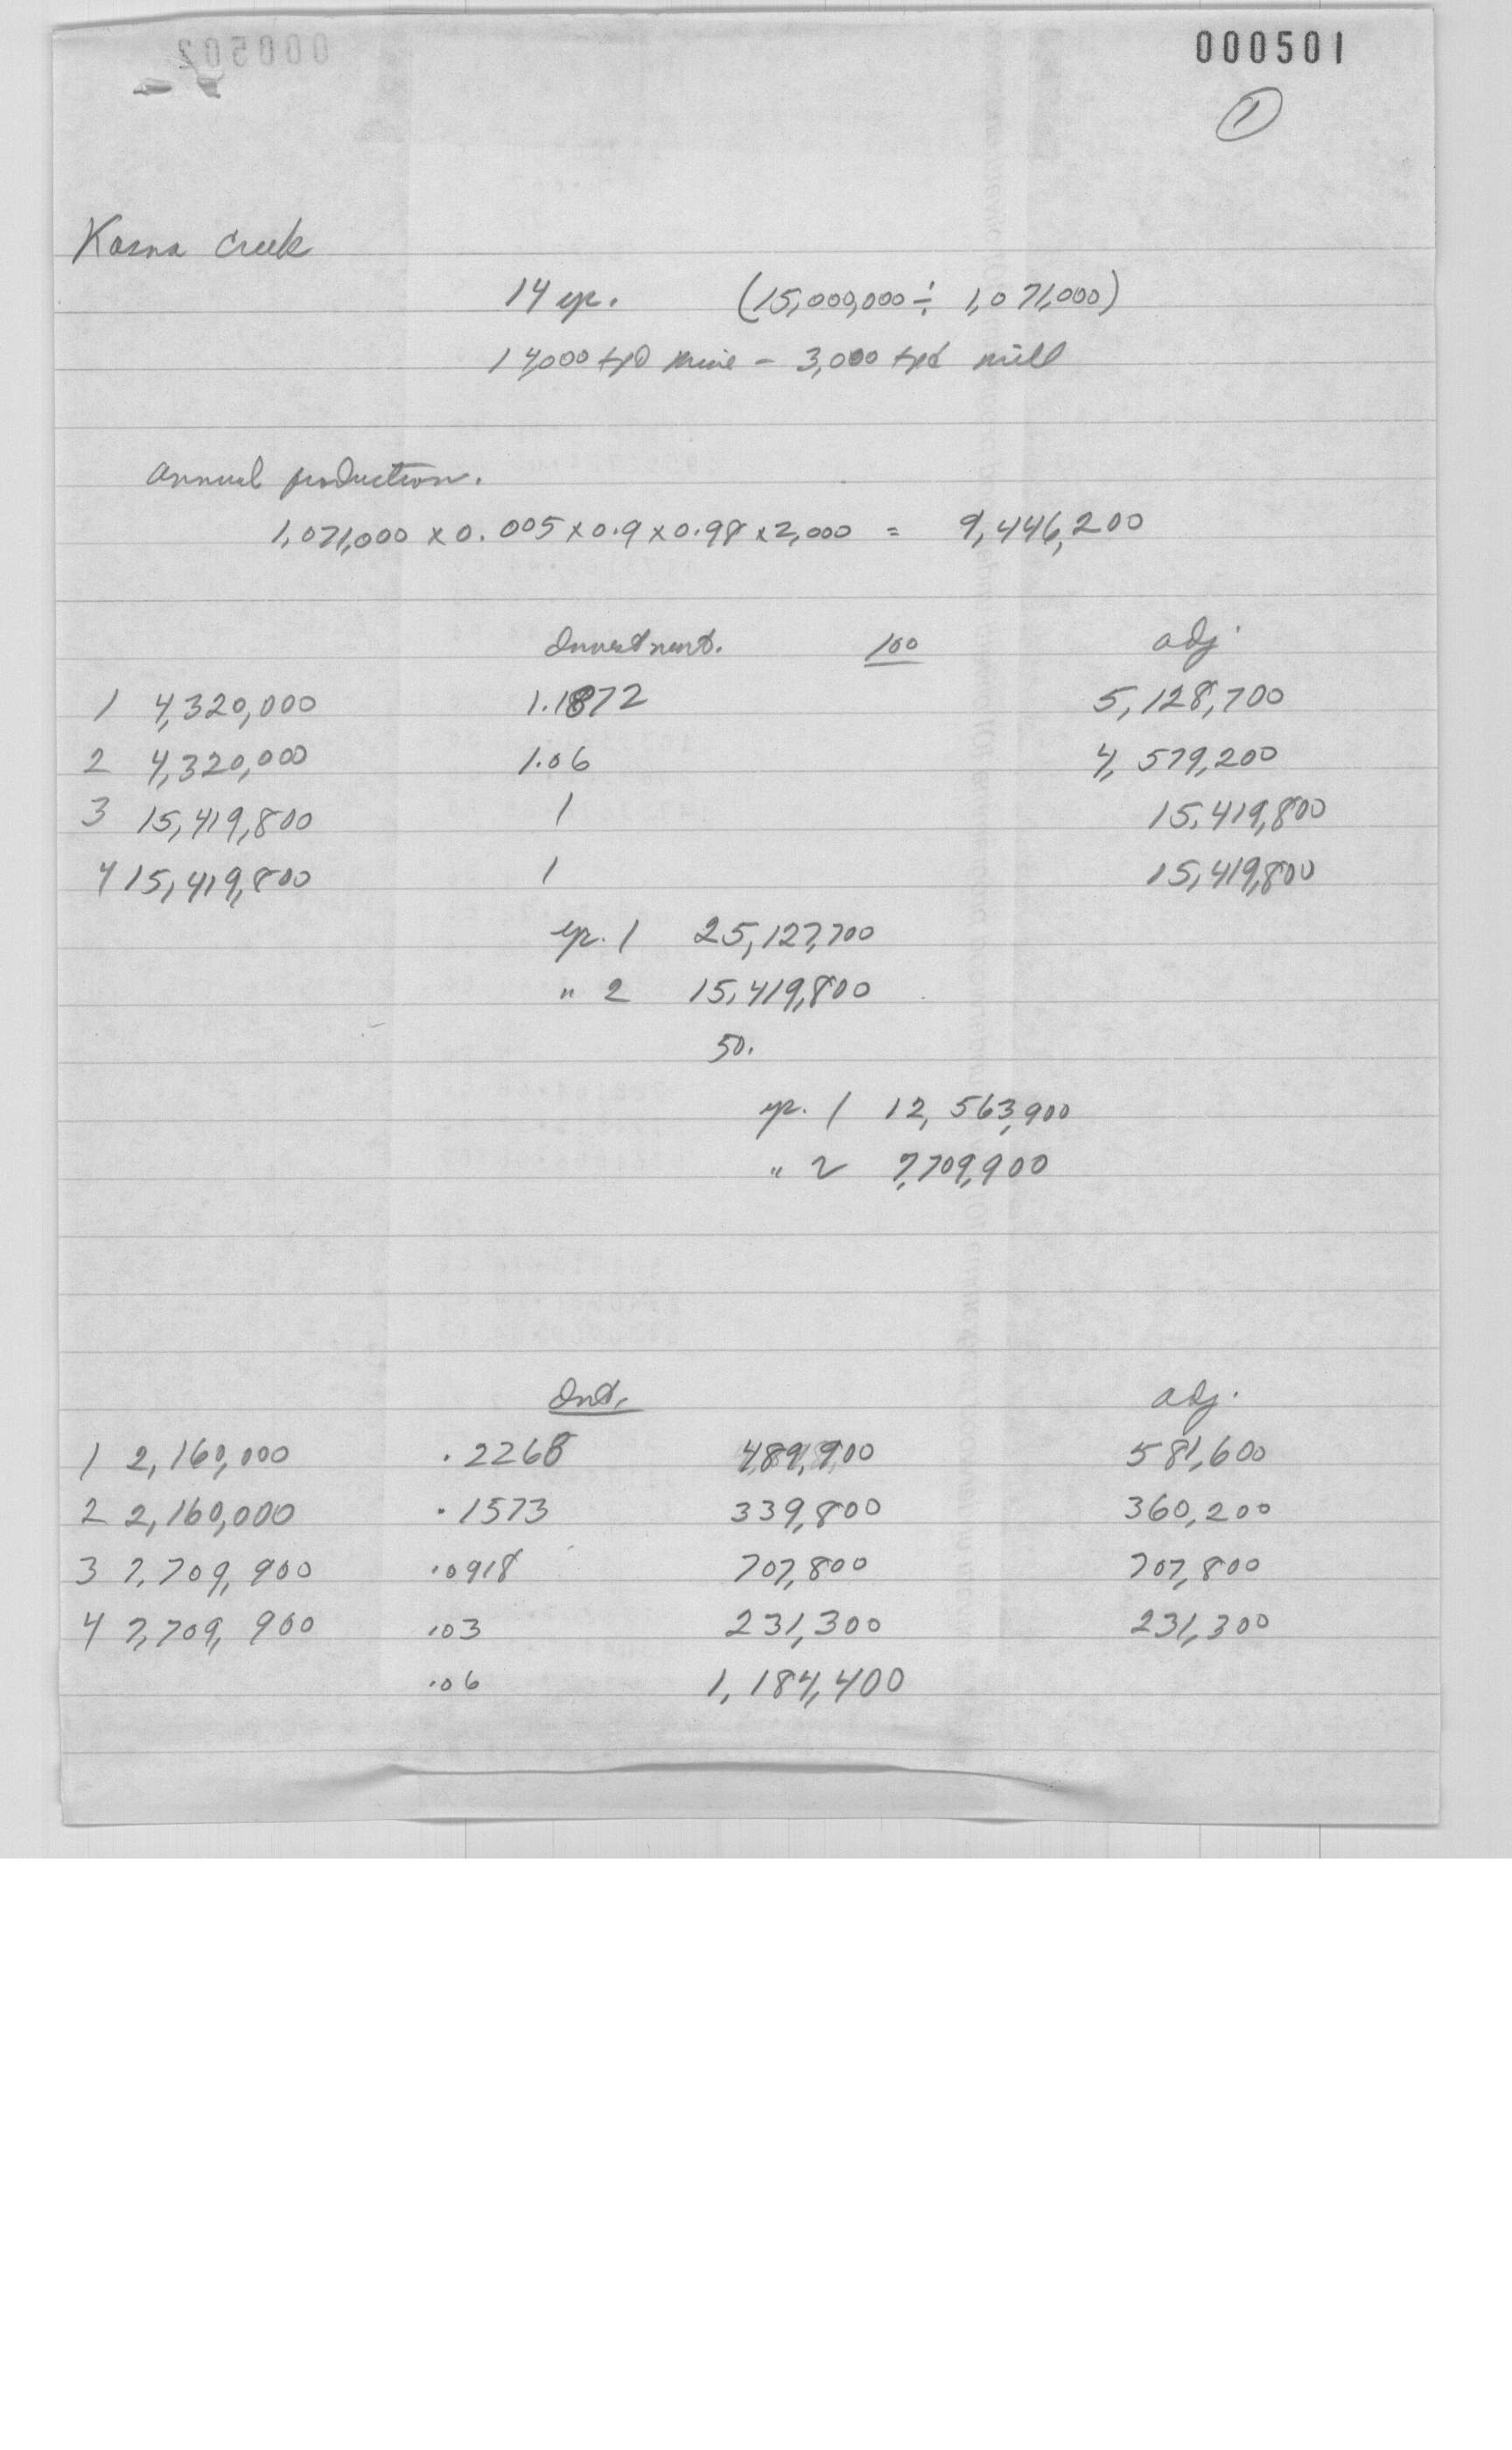 000502
000501
1
Kasna Creek
14 yr. (15,000,000 ÷ 1,071,000)
14,000 tpd mine - 3,000 tpd mill
Annual production.
1,071,000 x 0.005 x 0.9 x 0.98 x 2,000 = 9,446,200
Investment. 100 adj.
1 4,320,000 1.1872 5,128,700
2 4,320,000 1.06 4,579,200
3 15,419,800 1 15,419,800
4 15,419,800 1 15,419,800
yr. 1 25,127,700
" 2 15,419,800
50.
yr. 1 12,563,900
" 2 7,709,900
Int. adj.
1 2,160,000 .2268 489,900 581,600
2 2,160,000 .1573 339,800 360,200
3 7,709,900 .0918 707,800 707,800
4 7,709,900 .03 231,300 231,300
.06 1,184,400